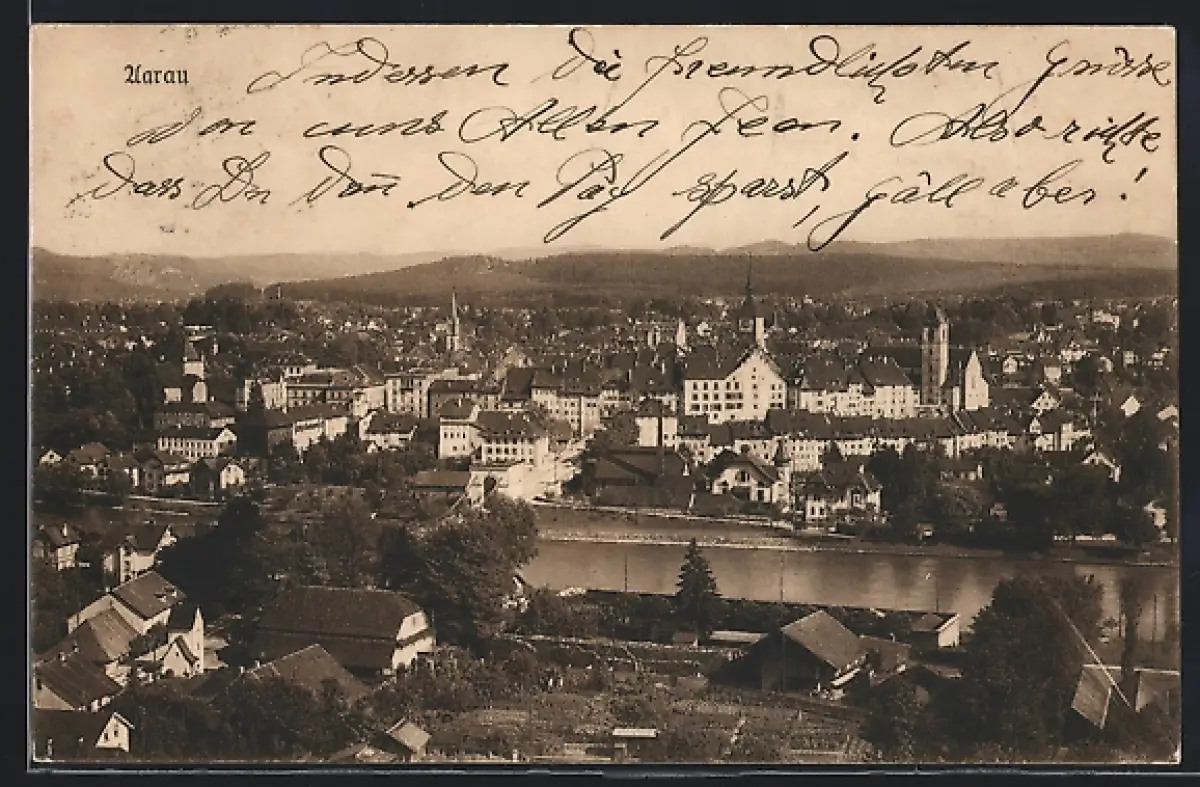 Aarau
Indessen die freundlichsten Grüsse
von uns Allen Jean. Also richte
dass Du dañ den Päch sparst, gäll aber!